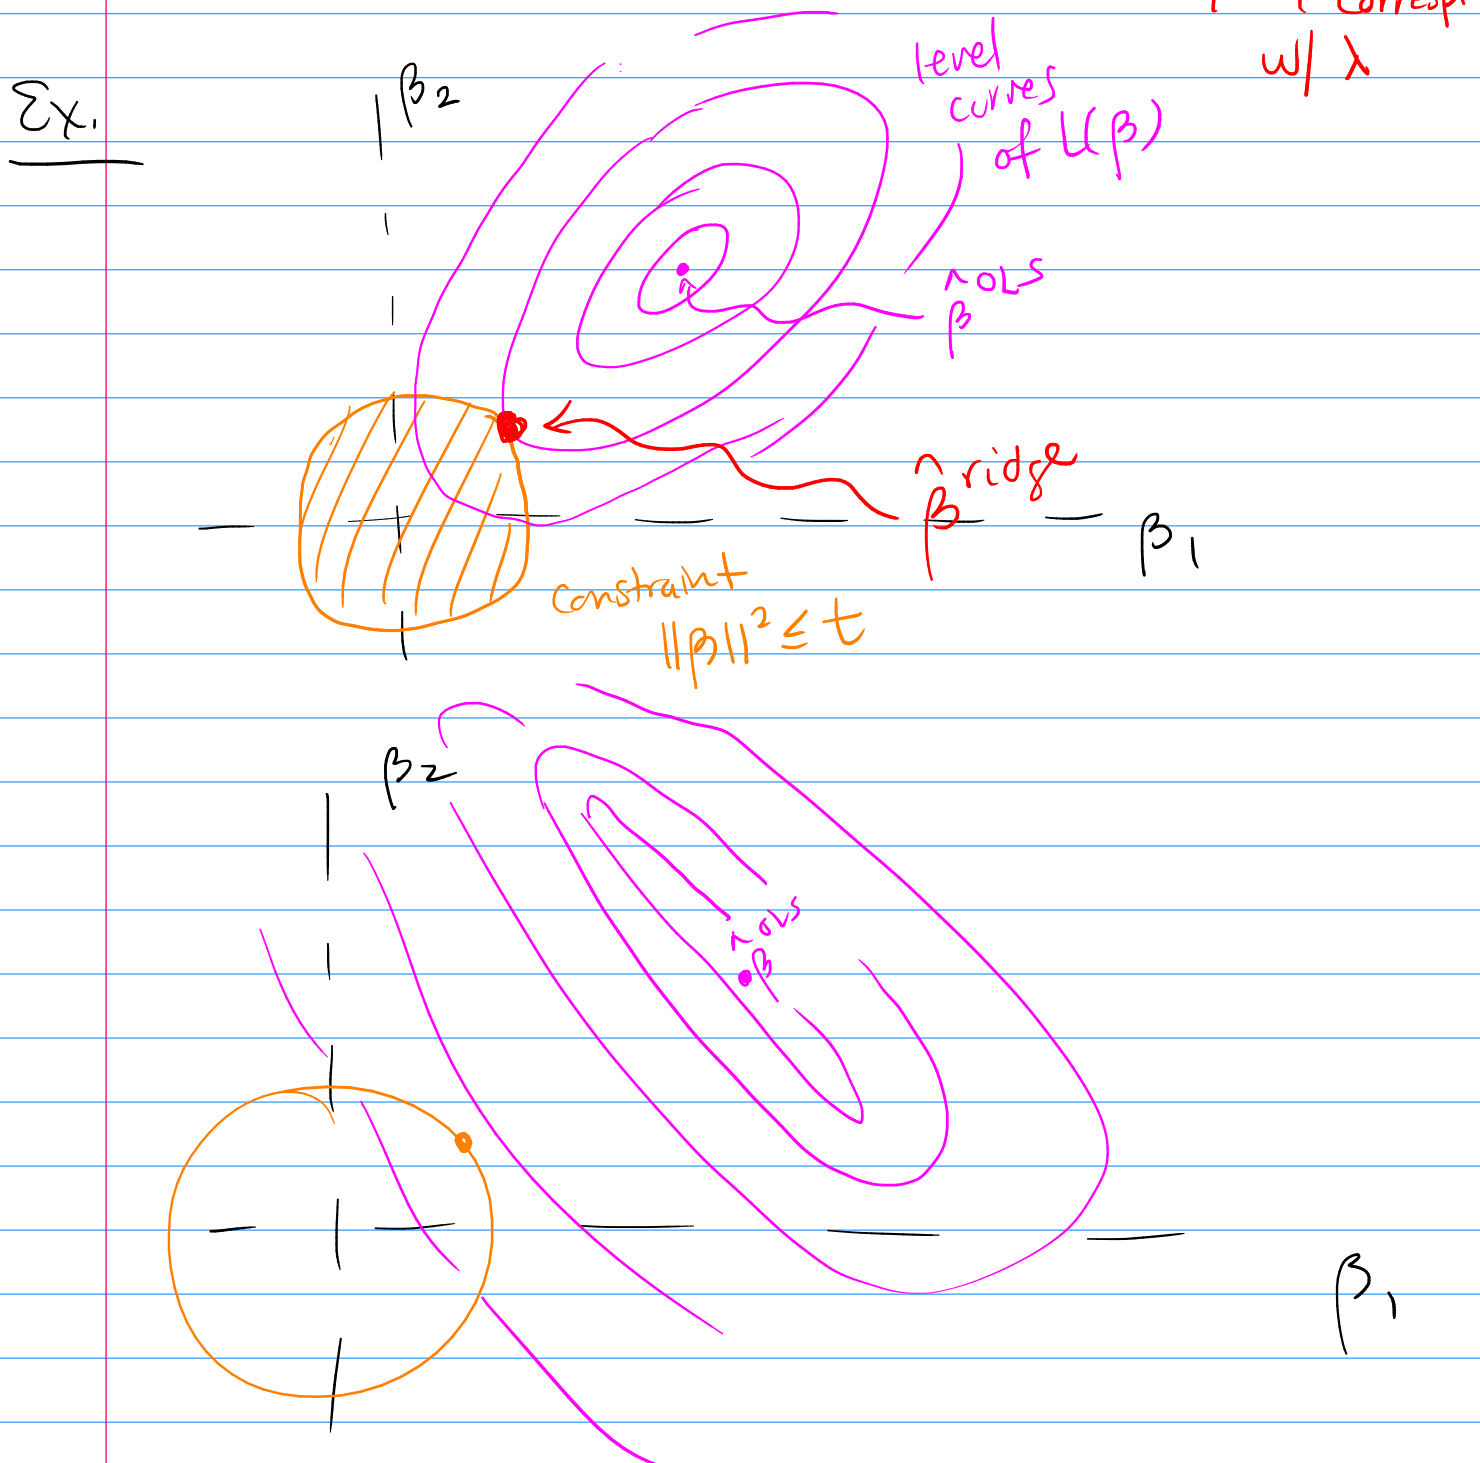 w/ λ
Ex.
β₂
level
curves
of L(β)
β̂ᴼᴸˢ
β̂ʳⁱᵈᵍᵉ
β₁
constraint
||β||² ≤ t
β₂
β̂ᴼᴸˢ
β₁